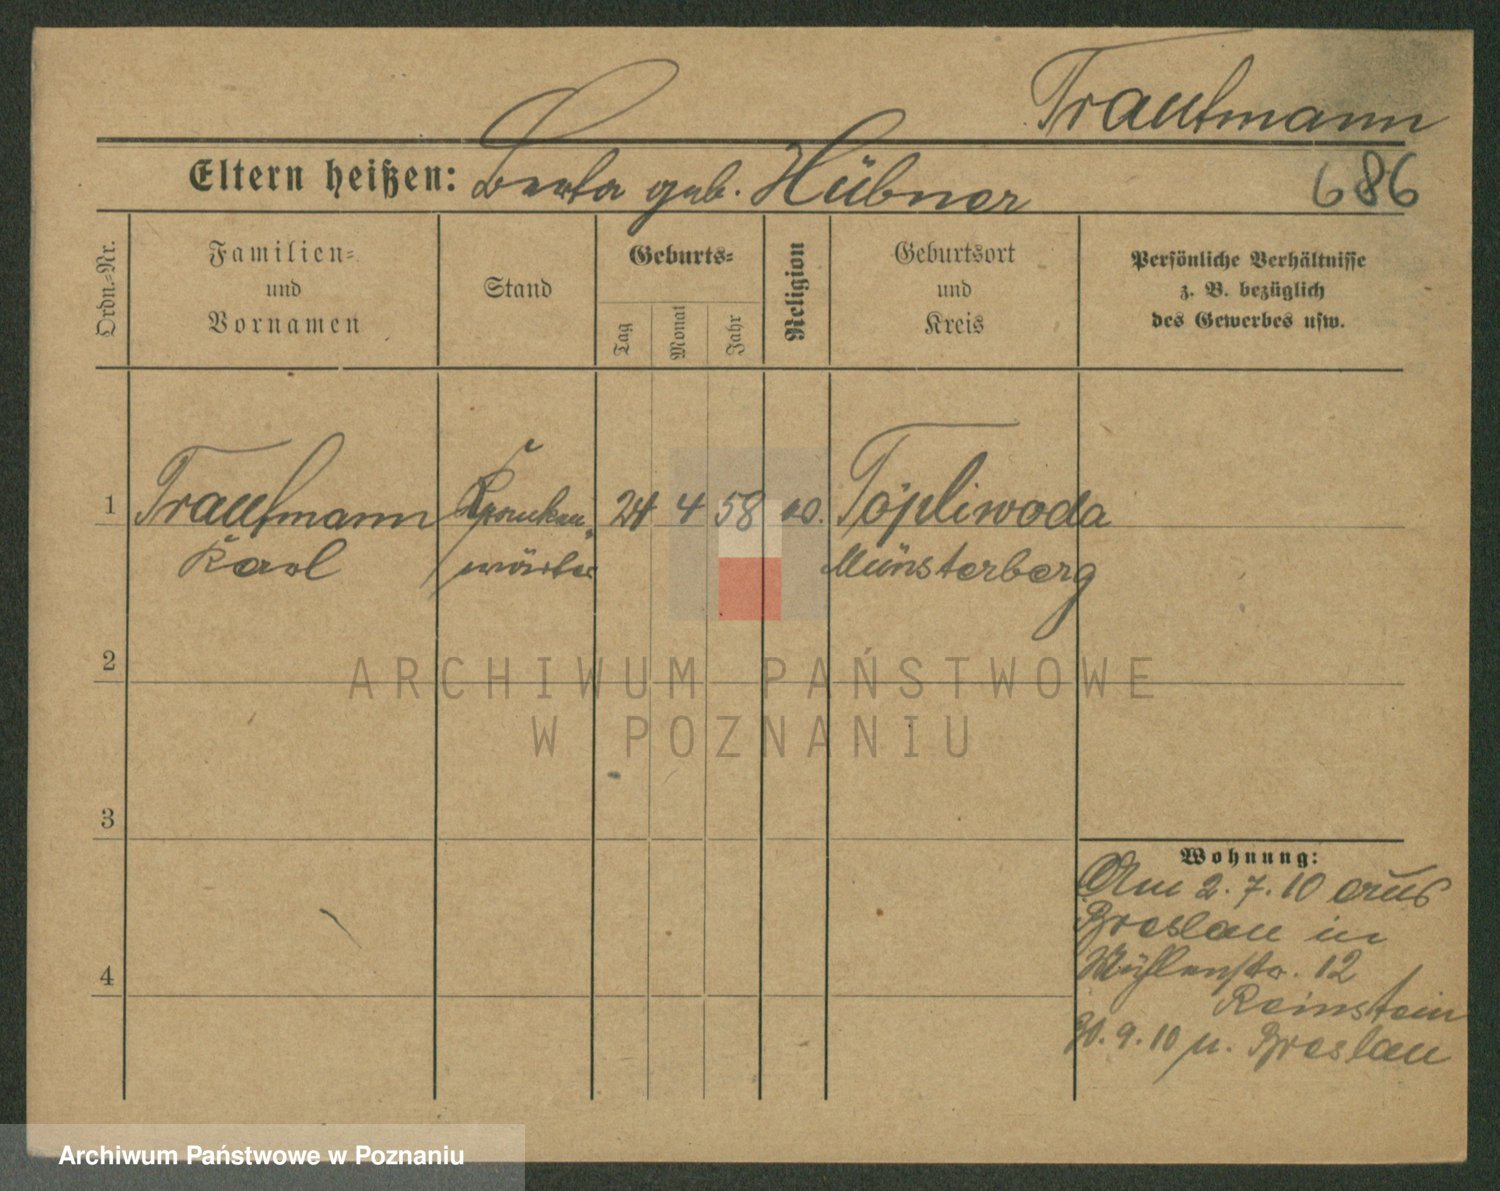 Trautmann
Eltern heißen: Berta geb. Hübner
686
Ordn.-Nr.
Familien-
und
Vornamen
Stand
Geburts-
Tag
Monat
Jahr
Religion
Geburtsort
und
Kreis
Persönliche Verhältnisse
z. B. bezüglich
des Gewerbes usw.
1 Trautmann Kranken- 24 4 58 Töpliwoda
Karl wärter Münsterberg
2
3
4
Wohnung:
Am 2.7.10 aus
Breslau in
Mühlenstr. 12
Reinstein
30.9.10 n. Breslau
ARCHIWUM PAŃSTWOWE
W POZNANIU
Archiwum Państwowe w Poznaniu